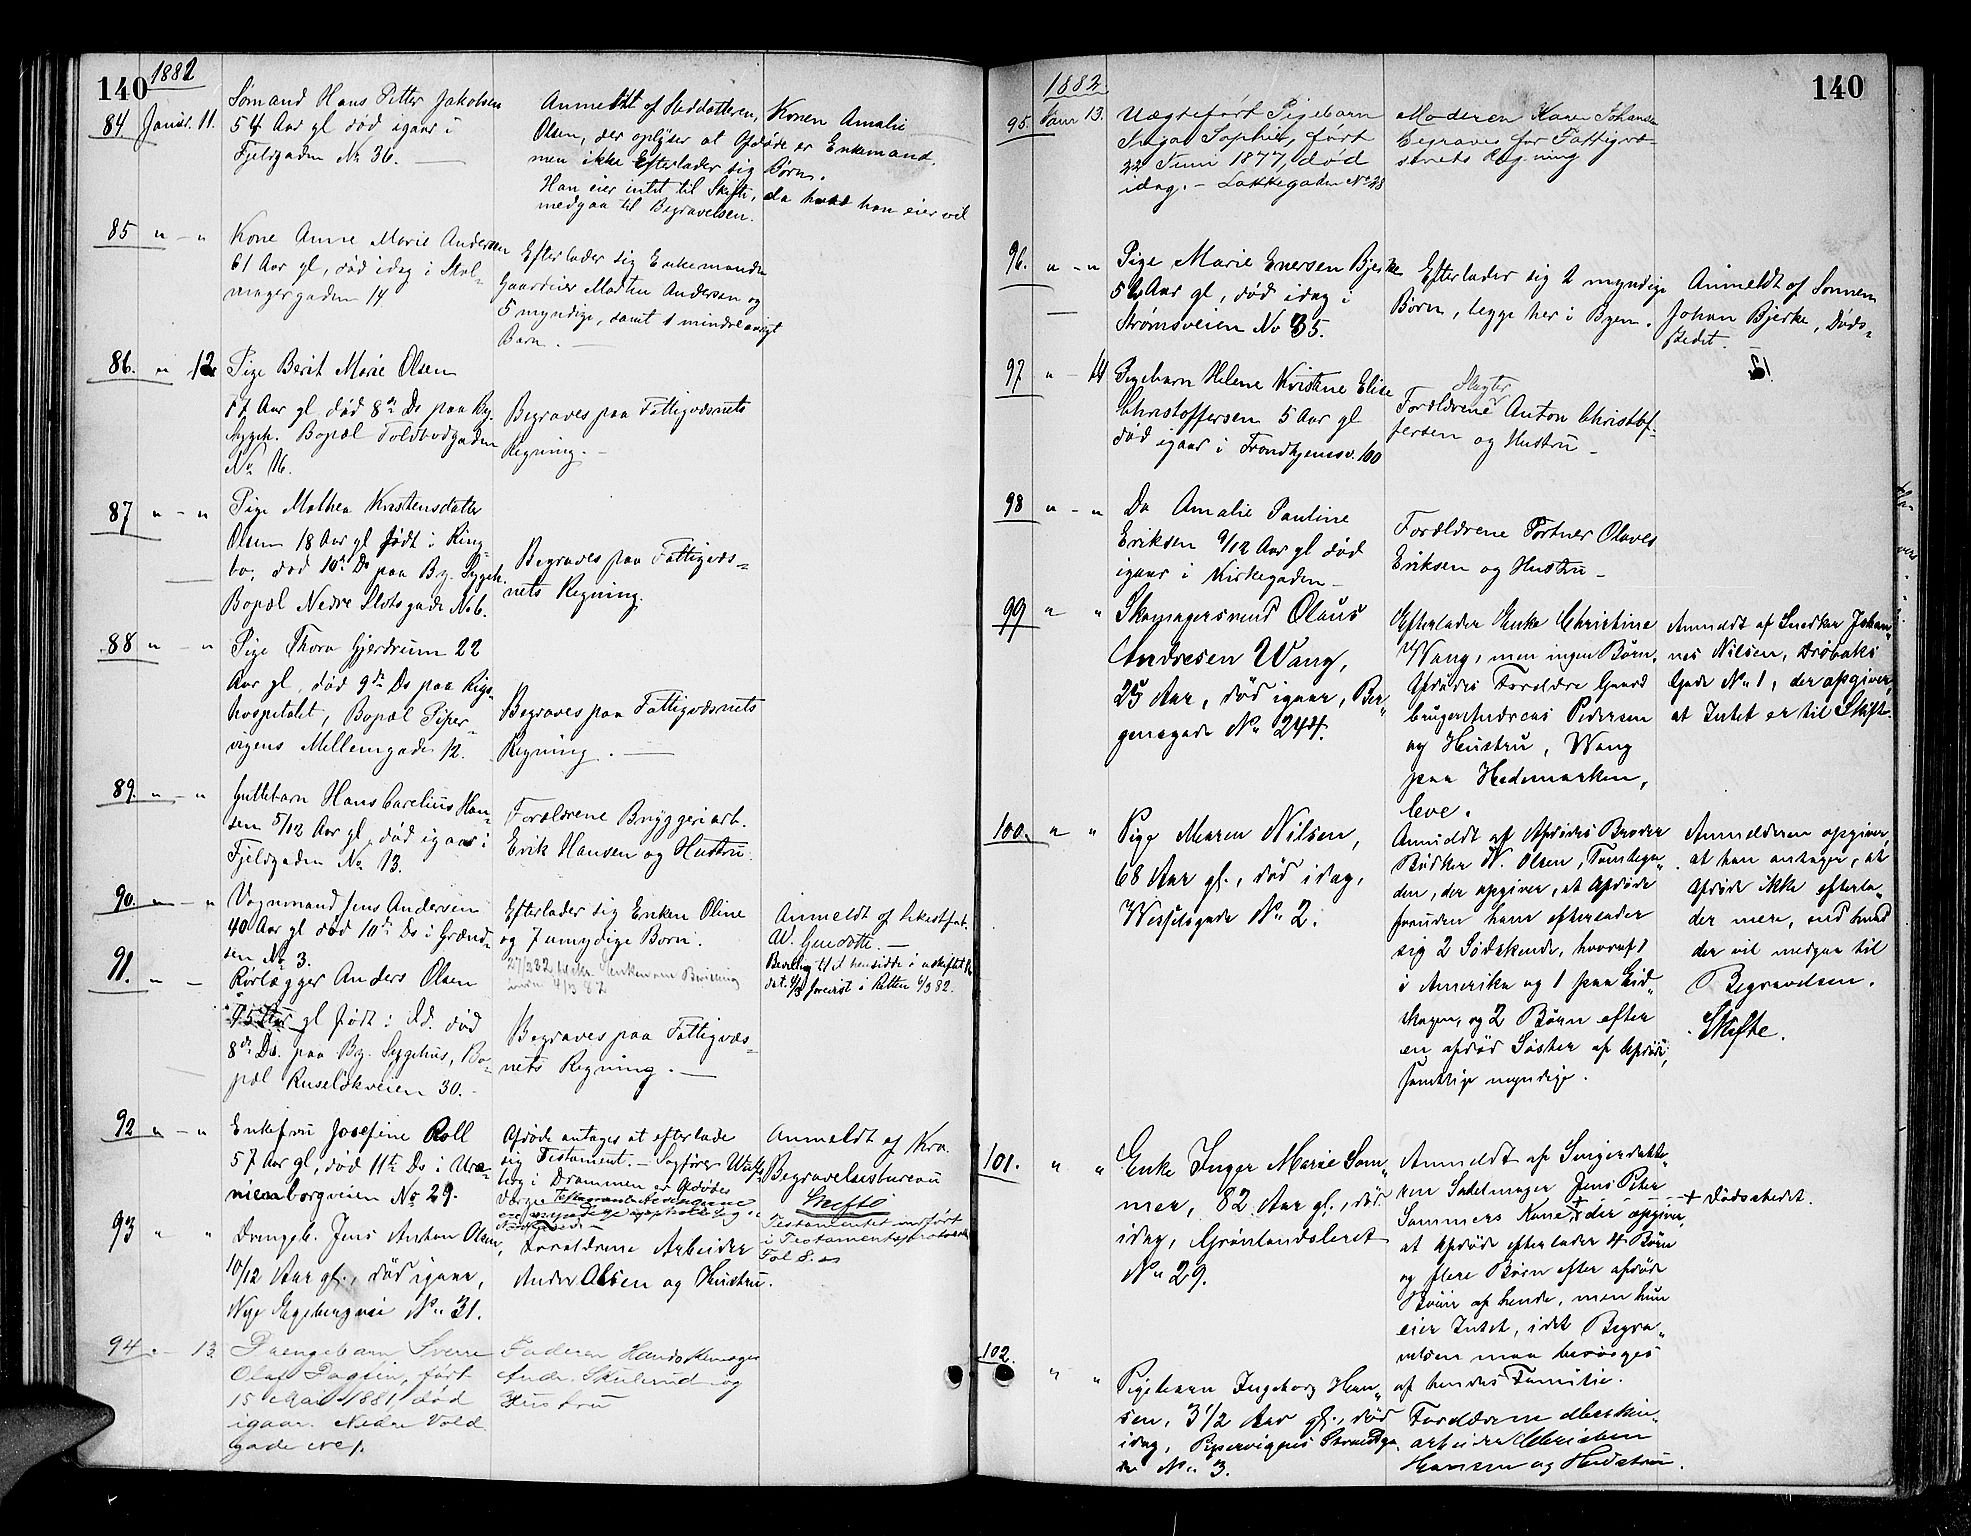 140
1882
84 Januar. 11.
Sømand Hans Petter Jakobsen
54 Aar gl død igaar i
Fjeldgaden No 36. —
Anmeldt af Steddatteren,
Olsen, der oplyser at Afdøde er Enkemand,
men ikke Efterlader sig Børn.
Han eier intet til Skifte, da hvad han eier vil
medgaa til Begravelsen.
Konen Amalie
85 " - "
Kone Anne Marie Andersen
61 Aar gl, død idag i Stol-
magergaden 14
Efterlader sig Enkemanden
Gaardeier Andersen og
5 myndige, samt 1 mindreaarigt
Barn. —
86. " 12
Pige Berit Marie Olsen
Aar gl, død 8de Ds paa By.
Sygeh. Bopæl Toldbodgaden
No 16.
Begraves paa Fattigvæsnets
Regning. —
87 " - "
Pige Mathea Kristensdatter
Olsen 18 Aar gl født i Ring-
bo, død 10de Ds paa By. Sygeh.
Bopæl Nedre Slotsgade No 6.
Begraves paa Fattigvæs-
nets Regning.
88 " - "
Pige Thora Gjerdrum 22
Aar gl, død 9de Ds paa Rigs-
hospitalet, Bopæl Piper-
vigens Mellemgade 12.
Begraves paa Fattigvæsnets
Regning. —
89. " - "
Guttebarn Hans Carelius Han-
sen 5/12 Aar gl, død igaar i
Fjeldgaden No 13.
Forældrene Bryggeriarb.
Erik Hansen og Hustru.
90. " - "
Vognmand Jens Andersen
40 Aar gl død 10de Ds i Grænd-
sen No 3.
Efterlader sig Enken Oline
og 7 umyndige Børn.
Anmeldt af
W. —
Bevilling til at hensidde i uskiftet Bo
dat. forevist i Retten 6/3 82.
91. " -
Rørlægger Anders Olsen
45 Aar gl født i død
8de Ds. paa By. Sygehus, Bo-
pæl Ruseløkveien 30.
Begraves paa Fattigvæs-
nets Regning. —
92 " - "
Enkefru Josefine Roll
57 Aar gl, død 11te Ds i Ura-
nienborgveien No 29.
Afdøde antages at efterlade
sig Testament. — Sagfører
i Drammen er Afdødes
Anmeldt af Kra
Begravelsesbureau
Skifte
Testamentet indført
i Testamentsprotokol
Fol 8.
93 " "
Drengeb. Jens Anton Olsen,
10/12 Aar gl., død igaar,
Nye Egebergvei No 31.
Forældrene Arbeider
Andr Olsen og Hustru.
94. - 13.
Drengebarn Sverre
Olaf Dagfin, født
15 Mai 1881, død
igaar. Nedre Vold
gade No 1.
Faderen Handskemager
Andr. Skulerud og
Hustru
140
1882
95. Januar 13.
Uægtefødt Pigebarn
Inga Sophie, født
22 Juni 1877, død
idag. — Lakkegaden No 28
Moderen Karen Johansen
Begraves for Fattigvæ-
senets Regning
96. " - "
Pige Marie Enersen Bjerke
Aar gl, død idag i
Strømsveien No 35.
Efterlader sig 2 myndige
Børn, begge her i Byen.
Anmeldt af Sønnen
Johan Bjerke, Døds-
stedet.
97 " - 14
Pigebarn Helene Kristine Elise
Christoffersen 5 Aar gl
død igaar i Trondhjemsv. 100
Slagter
Forældrene Anton Christof-
fersen og Hustru —
98 " - "
Do Amalie Pauline
Eriksen 9/12 Aar gl død
igaar i Kirkegaden —
Forældrene Portner Olaves
Eriksen og Hustru —
99 " "
Skomagersvend Olaus
Andresen Wang,
25 Aar, død igaar, Ber-
gensgade No 244.
Efterlader Enke Christine
Wang, men ingen Børn.
Afdødes Forældre Gaard
bruger Andreas Pedersen
og Hustru, Wang
paa Hedemarken,
leve.
Anmeldt af Snedker Johan-
nes Nilsen, Drøbaks
Gade No 1, der opgiver,
at Intet er til Skifte.
100. " "
Pige Maren Nilsen,
68 Aar gl., død idag,
Wesselsgade No 2.
Anmeldt af Afdødes Broder
Bødker N. Olsen, Tomtega-
den, der opgiver, at Afdøde
foruden ham efterlader
sig 2 Sødskende, hvoraf 1
i Amerika og 1 paa Eid-
skogen, og 2 Børn efter
en afdød Søster af Afdøde,
samtlige myndige.
Anmelderen opgiver,
at han antager, at
Afdøde ikke efterla-
der mere, end hvad
der vil medgaa til
Begravelsen.
Skifte.
101. " "
Enke Inger Marie Som-
mer, 82 Aar gl., død
idag, Grønlandsleret
No 29.
Anmeldt af Svigerdatte-
ren Sadelmager Jens Peter
Sommers Kone, + der opgiver,
at Afdøde efterlader 4 Børn
og flere Børn efter afdøde
Børn af hende, men hun
eier Intet, idet Begra-
velsen maa besørges
af hendes Familie.
+ Dødsstedet.
102. " "
Pigebarn Ingeborg Han-
sen, 3 1/2 Aar gl., død
idag, Pipervigens Strandga-
de No 3.
Forældrene Maskin-
arbeider Christen
Hansen og Hustru.